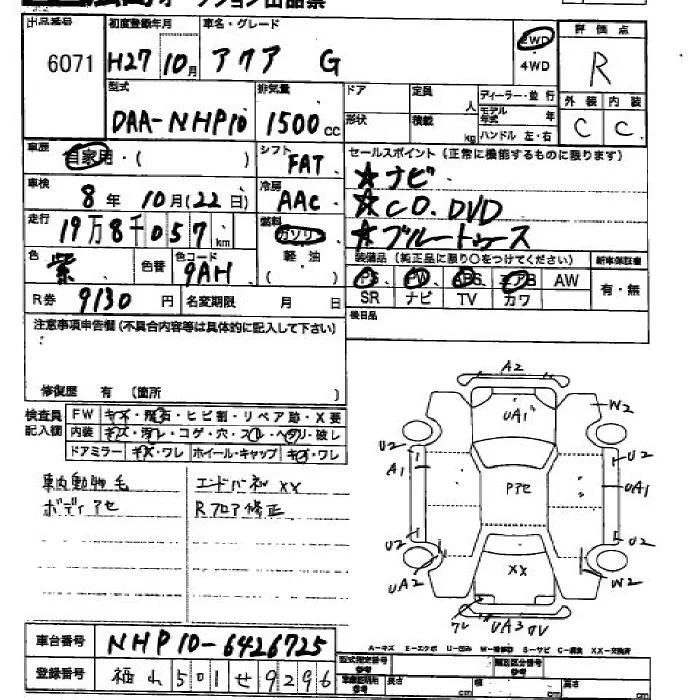 オークション出品票
出品番号 初度登録年月 車名・グレード 評価点
6071 H27 10月 アクア G 2WD 4WD R
型式 排気量 ドア 定員 人 ディーラー・並行 外装 内装
DAA-NHP10 1500cc 形状 積載 kg モデル年式 年 ハンドル 左・右 C C
車歴 自家用・( ) シフト FAT セールスポイント(正常に機能するものに限ります)
☆ナビ
車検 8年 10月(22日) 冷房 AAC ☆CD.DVD
走行 19万8千057km 燃料 ガソリン ☆ブルートゥース
軽油
( )
色 紫 色替 色コード 9AH 装備品(純正品に限り○をつけてください) 新車保証書
PS PW ABS エアB AW 有・無
R券 9130円 名変期限 月 日 SR ナビ TV カワ
注意事項申告欄(不具合内容等は具体的に記入して下さい) 後日品
:
修復歴 有 (箇所 )
検査員記入欄 FW キズ・飛石・ヒビ割・リペア跡・X要
内装 キズ・汚レ・コゲ・穴・スレ・ヘタリ・破レ
ドアミラー キズ・ワレ ホイール・キャップ キズ・ワレ
車内動物毛 エンドパネ XX
ボディアセ Rフロア修正
A2
UA1 W2
U2 U2
A1 Pアセ UA1
U2 U2
UA2 XX W2
ワレ UA3 ワレ
A-キズ E-エクボ U-凹み W-補修跡 S-サビ C-腐食 XX-交換済
車台番号 NHP10-6426725
型式指定番号 参考 類別区分番号 参考
登録番号 福山501せ9296 長さ cm 幅 cm 高さ cm